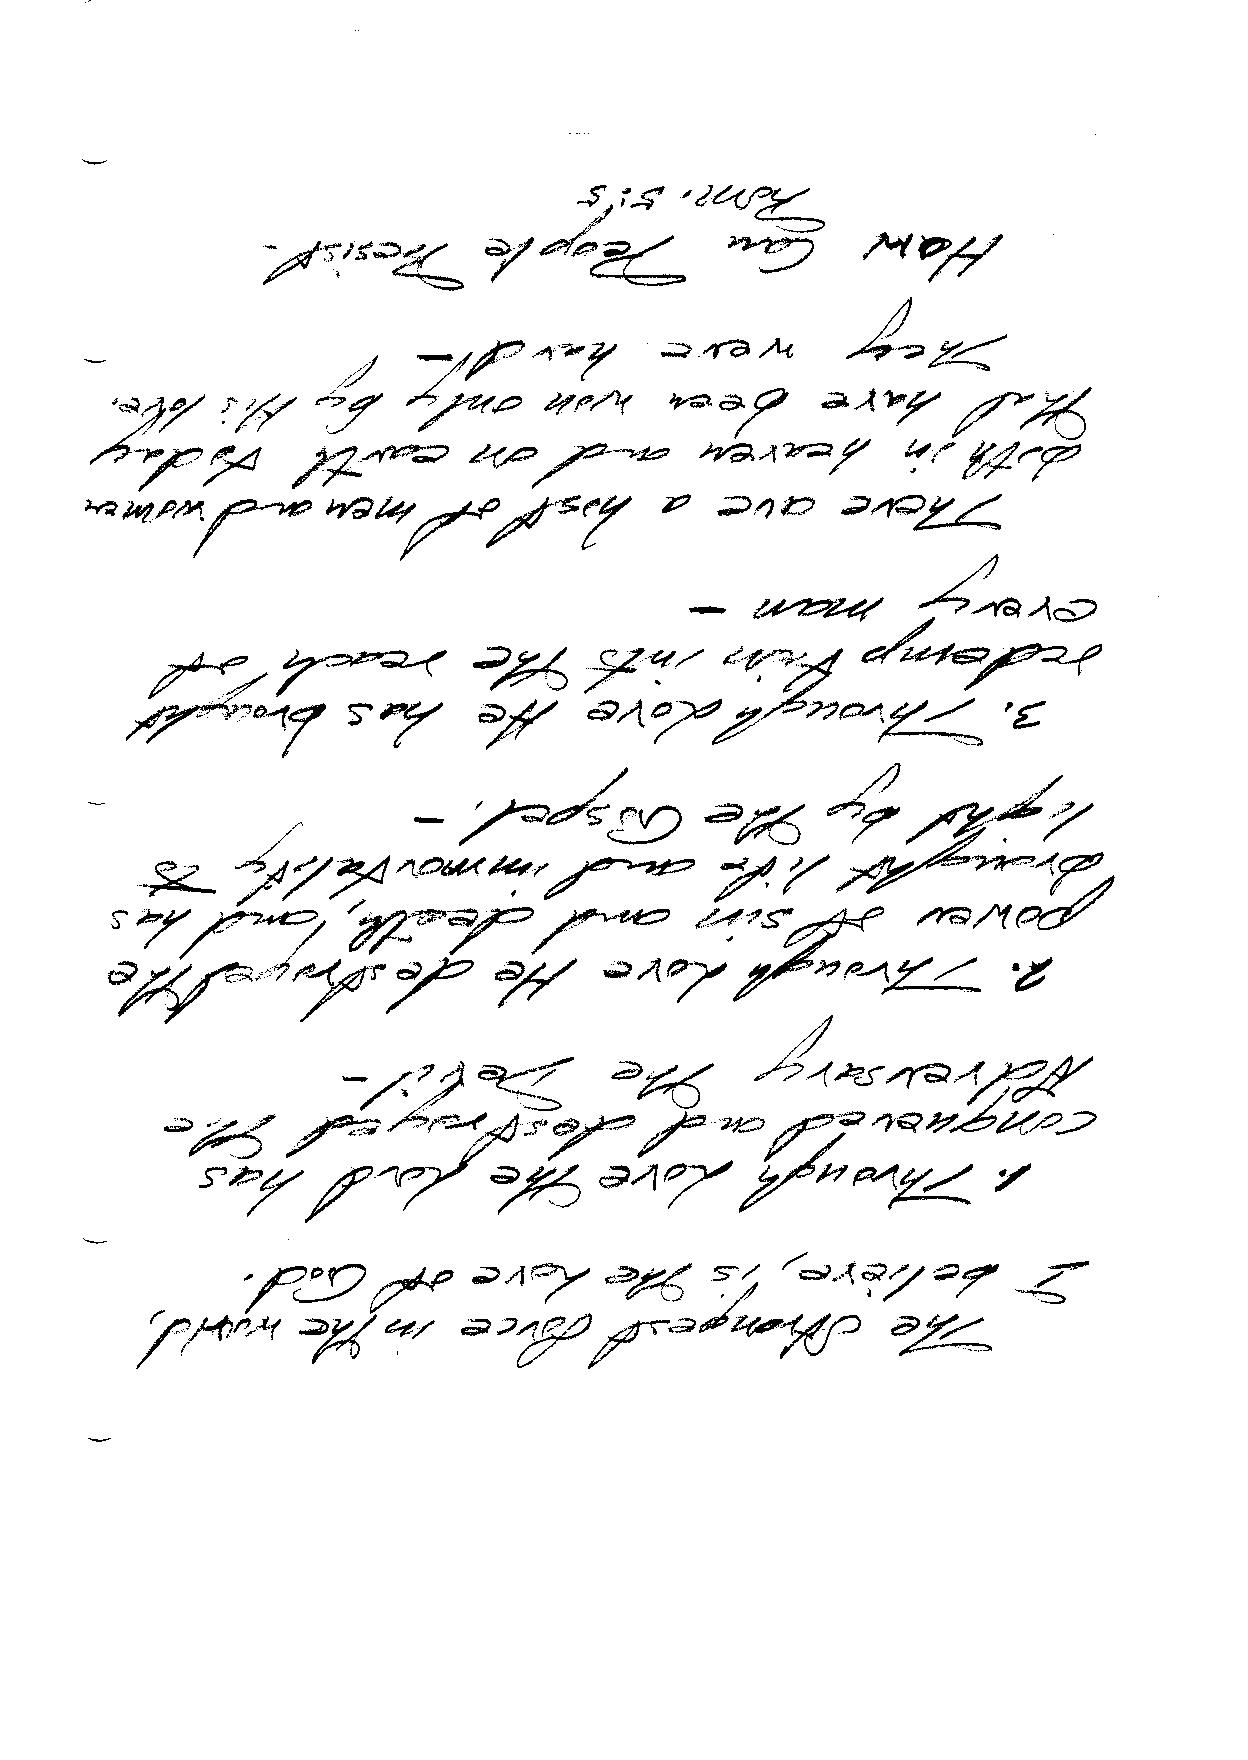 The strongest force in the world,
I believe, is the Love of God.
1. Through Love the Lord has
conquered and destroyed the
Adversary the Devil -
2. Through Love He destroyed the
power of sin and death, and has
brought life and immortality to
light by the Gospel. -
3. Through Love He has brought
redemption into the reach of
every man -
There are a host of men and women
both in heaven and on earth today
that have been won only by His love.
They were hard -
How Can People Resist -
Rom. 5:5